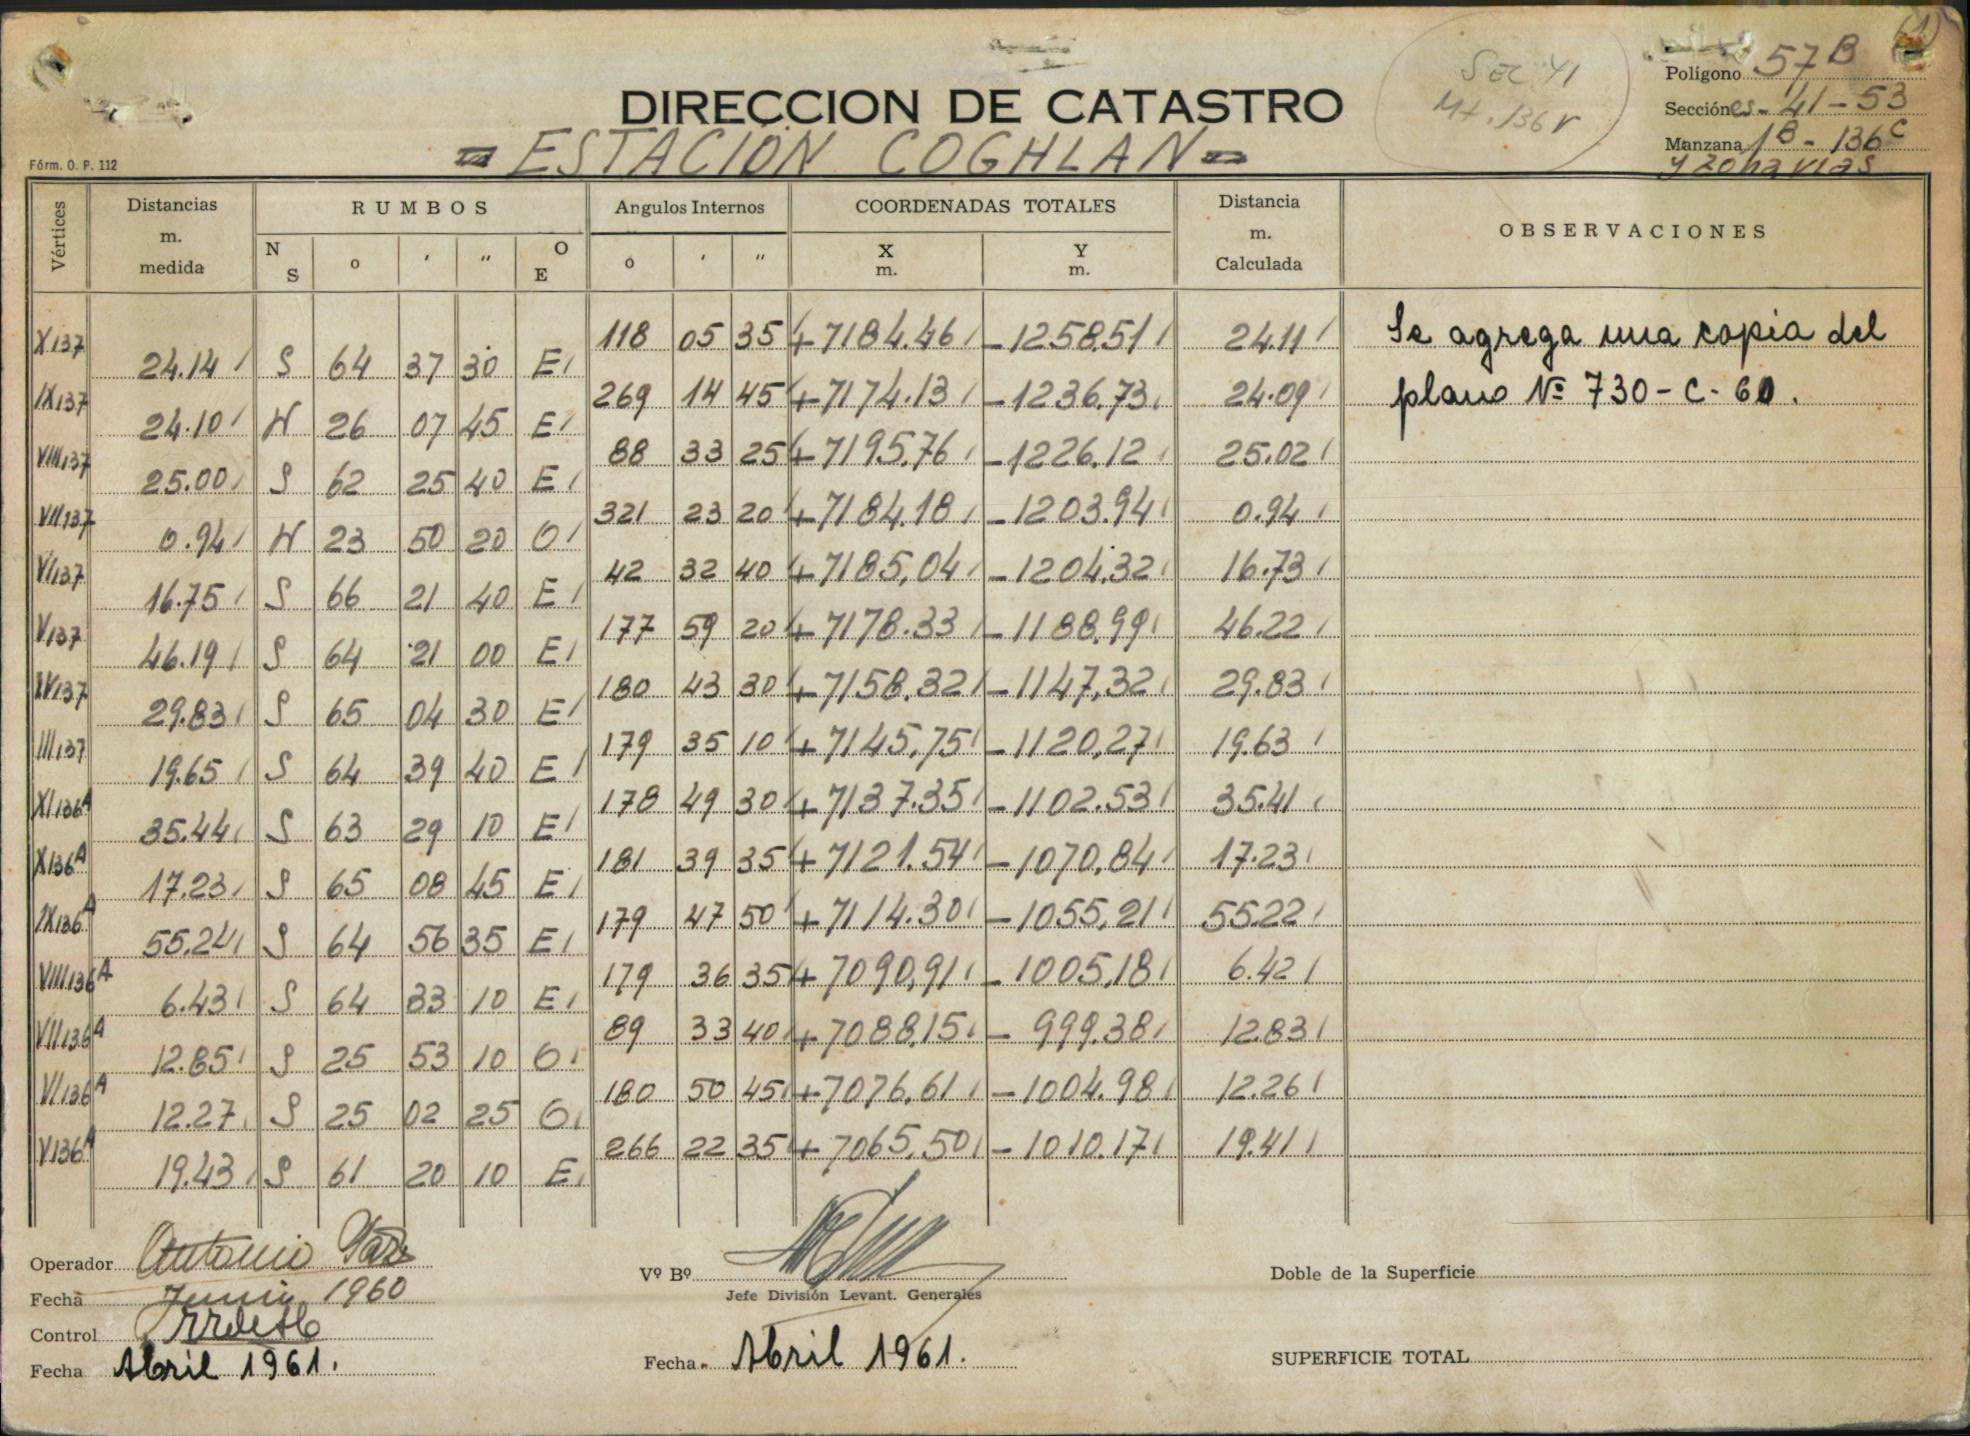 (1)
Polígono 57 B
SEC. 41
Mt. 136 r
Secciónes - 41 - 53
DIRECCION DE CATASTRO
Manzana 1B - 136 C
y zona vias
= ESTACIÓN COGHLAN =
Fórm. O. P. 112
Vértices Distancias m. medida RUMBOS Angulos Internos COORDENADAS TOTALES Distancia m. Calculada OBSERVACIONES
N S o ' " O E o ' " X m. Y m.
X137 118 05 35 +7184.46 -1258.51 24.11 Se agrega una copia del
24.14 S 64 37 30 E
IX137 269 14 45 +7174.13 -1236.73 24.09 plano Nº 730-C-60.
24.10 N 26 07 45 E
VIII137 88 33 25 +7195.76 -1226.12 25.02
25.00 S 62 25 40 E
VII137 321 23 20 +7184.18 -1203.94 0.94
0.94 N 23 50 20 O
VI137 42 32 40 +7185.04 -1204.32 16.73
16.75 S 66 21 40 E
V137 177 59 20 +7178.33 -1188.99 46.22
46.19 S 64 21 00 E
IV137 180 43 30 +7158.32 -1147.32 29.83
29.83 S 65 04 30 E
III137 179 35 10 +7145.75 -1120.27 19.63
19.65 S 64 39 40 E
XI136A 178 49 30 +7137.35 -1102.53 35.41
35.44 S 63 29 10 E
X136A 181 39 35 +7121.54 -1070.84 17.23
17.23 S 65 08 45 E
IX136A 179 47 50 +7114.30 -1055.21 55.22
55.24 S 64 56 35 E
VIII136A 179 36 35 +7090.91 -1005.18 6.42
6.43 S 64 33 10 E
VII136A 89 33 40 +7088.15 - 999.38 12.83
12.85 S 25 53 10 O
VI136A 180 50 45 +7076.61 -1004.98 12.26
12.27 S 25 02 25 O
V136A 266 22 35 +7065.50 -1010.17 19.41
19.43 S 61 20 10 E
Operador Antonio
Vº Bº
Doble de la Superficie
Fecha Junio 1960
Jefe División Levant. Generales
Control
Fecha Abril 1961.
Fecha Abril 1961.
SUPERFICIE TOTAL